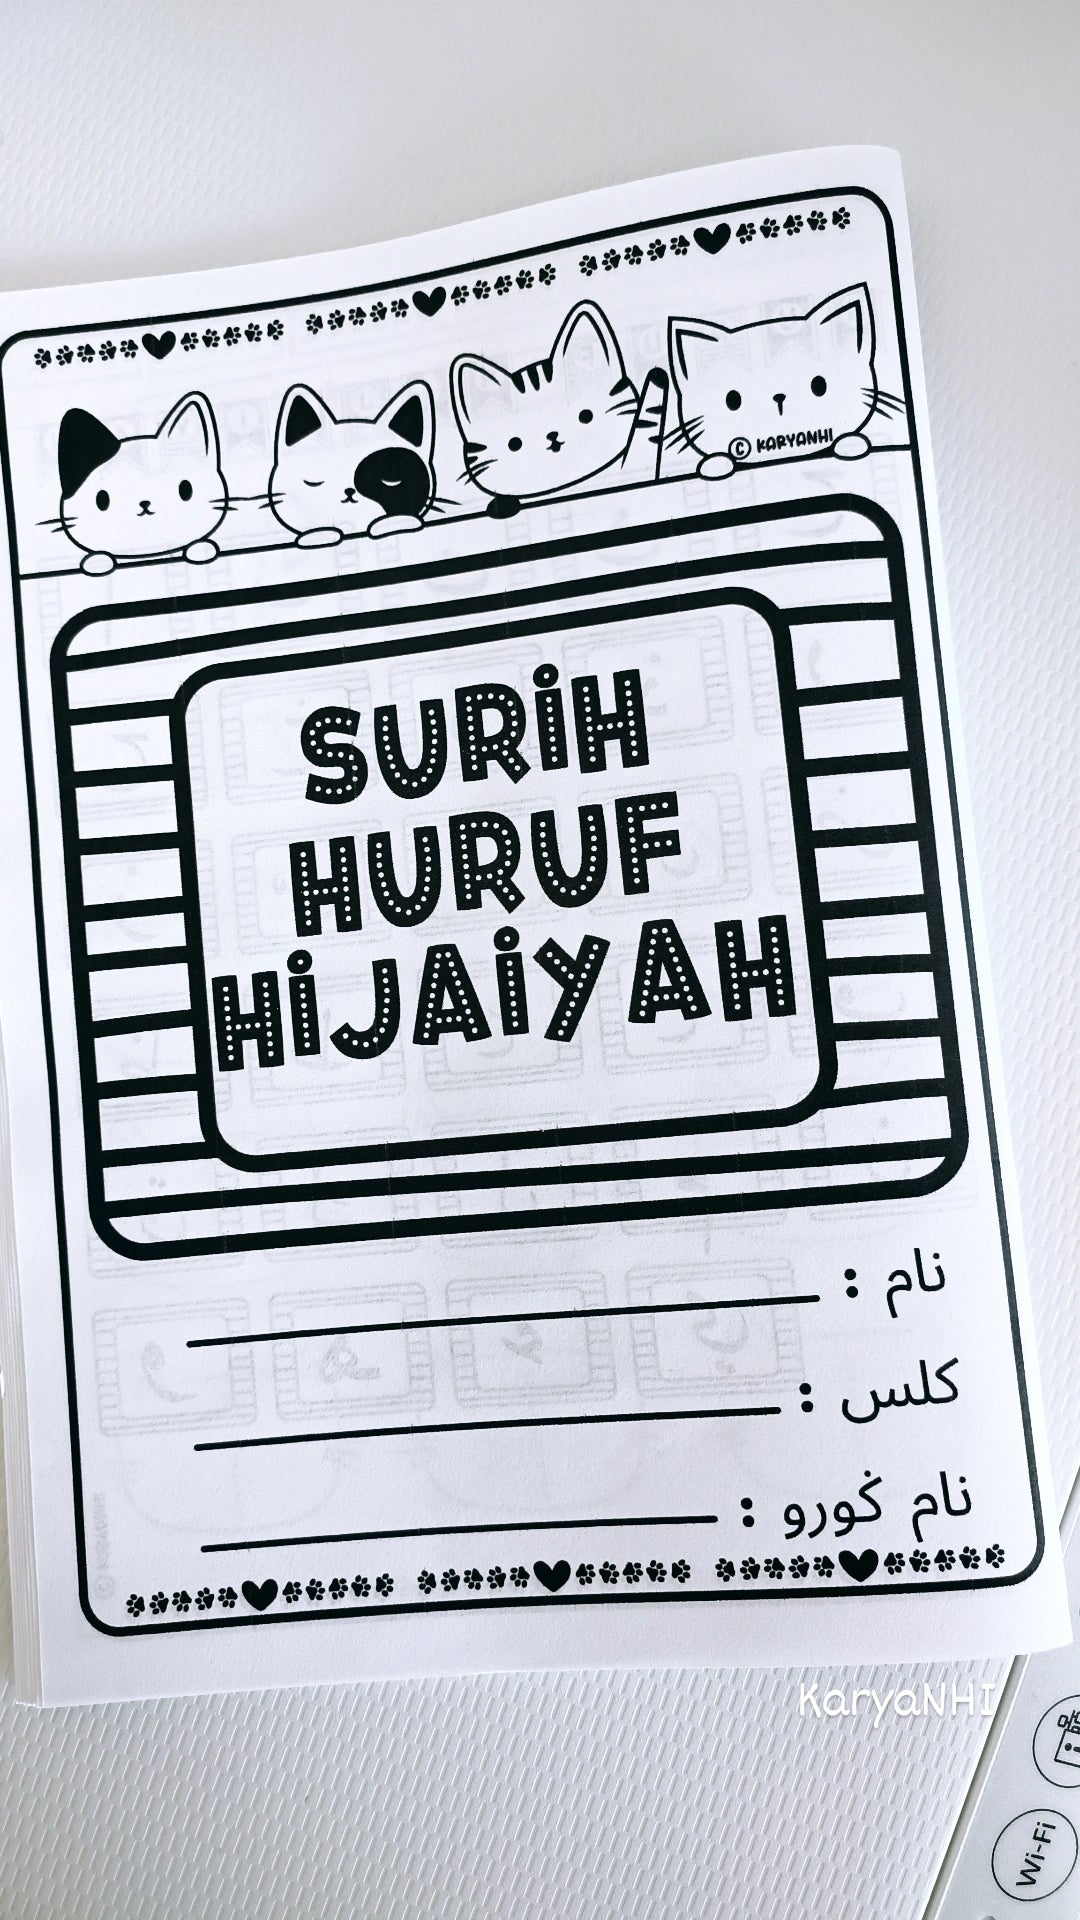 © KARYANHI
SURIH
HURUF
HIJAIYAH
نام :
کلس :
نام ݢورو :
© KARYANHI
KaryaNHI
Wi-Fi